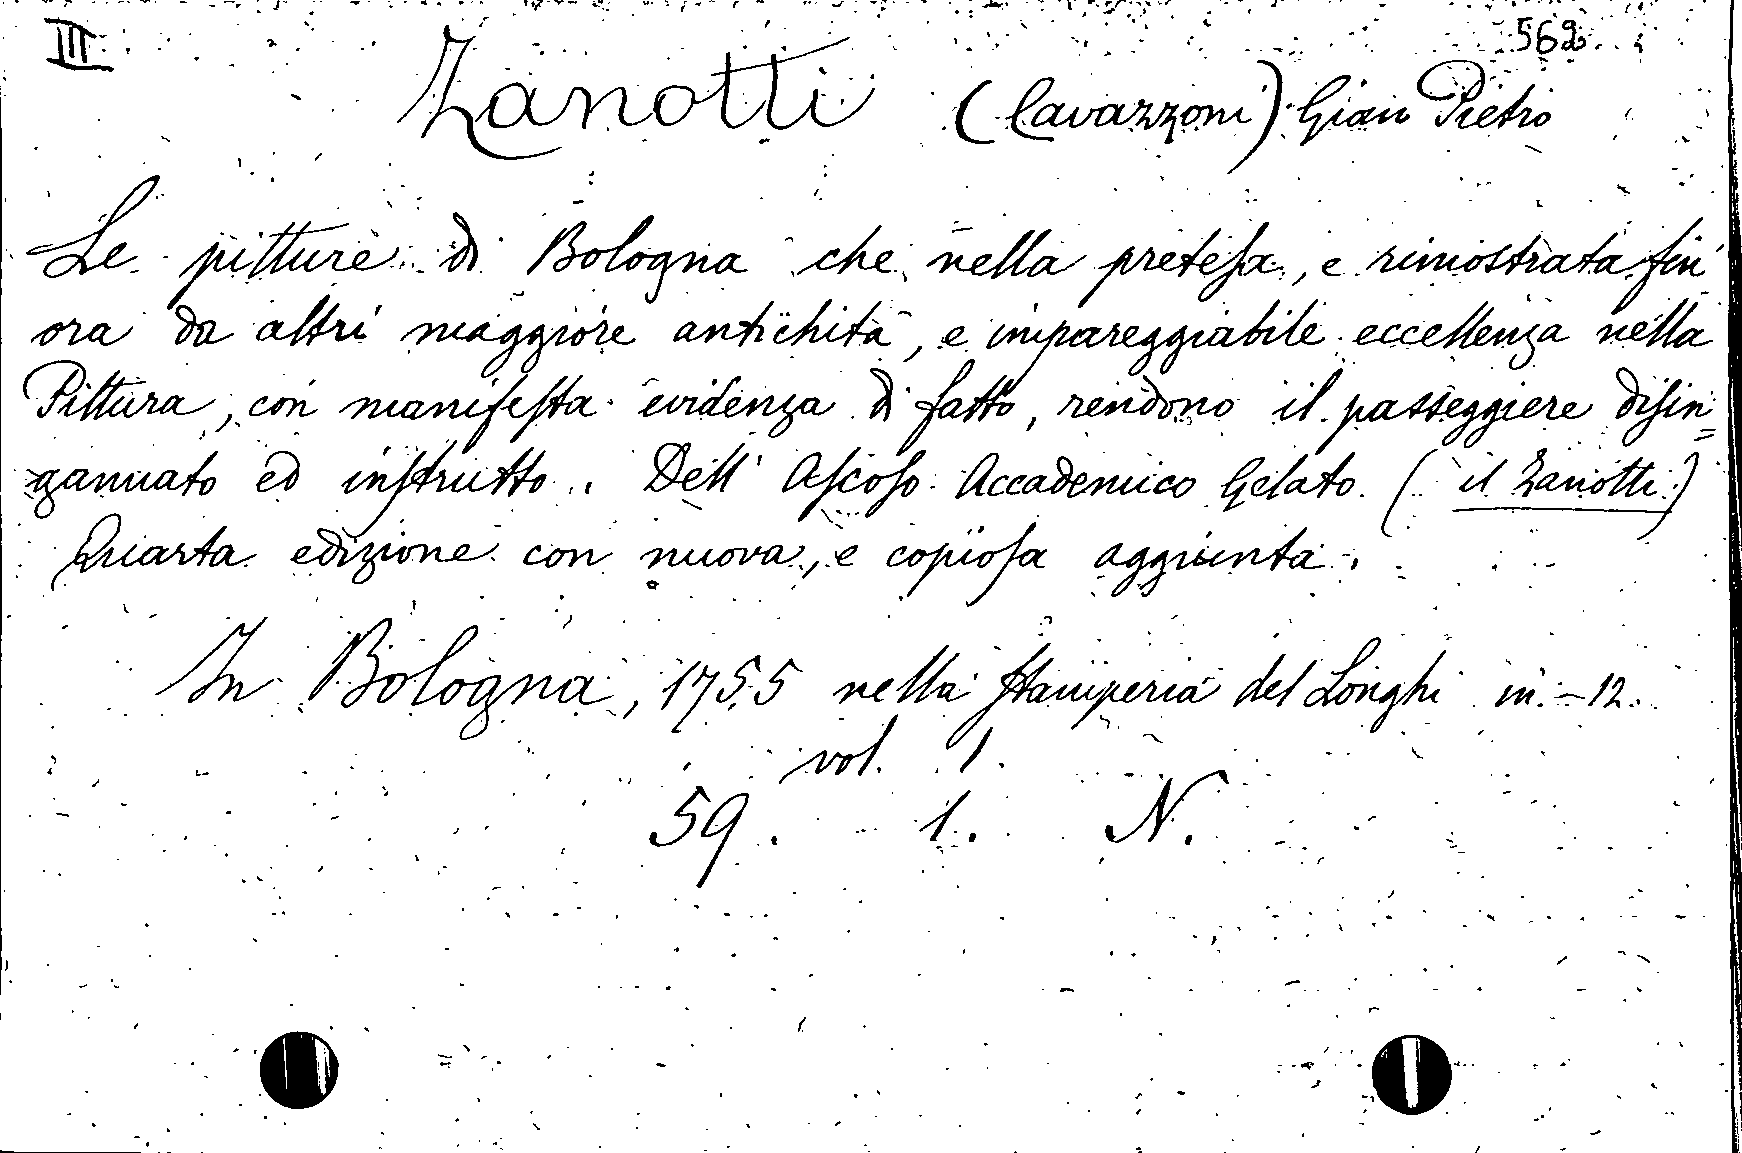 III 562
Zanotti (Cavazzoni) Gian Pietro
Le pitture di Bologna che nella pretesa, e rimostrata fin
ora da altri maggiore antichità, e impareggiabile eccellenza nella
Pittura, con manifesta evidenza di fatto, rendono il passeggiere disin=
gannato ed instrutto. Dell' Ascoso Accademico Gelato. (il Zanotti)
Quarta edizione con nuova, e copiosa aggiunta.
In Bologna, 1755 nella Stamperia del Longhi in-12.
vol. 1.
59. 1. N.